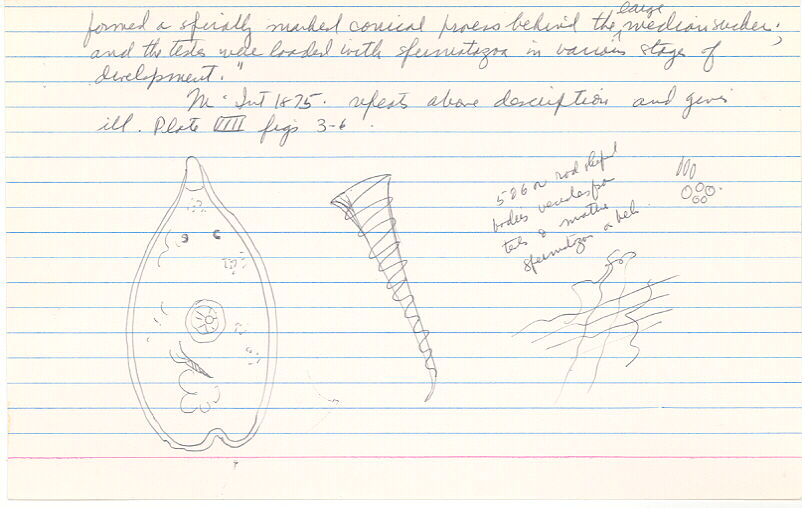 formed a spirally marked conical process behind the large median sucker;
and the testes were loaded with spermatozoa in various stages of
development."
Mc Int 1875. repeats above description and gives
ill. Plate VIII figs 3-6.
5 & 6 or rod shaped
bodies
testes & mature
spermatozoa